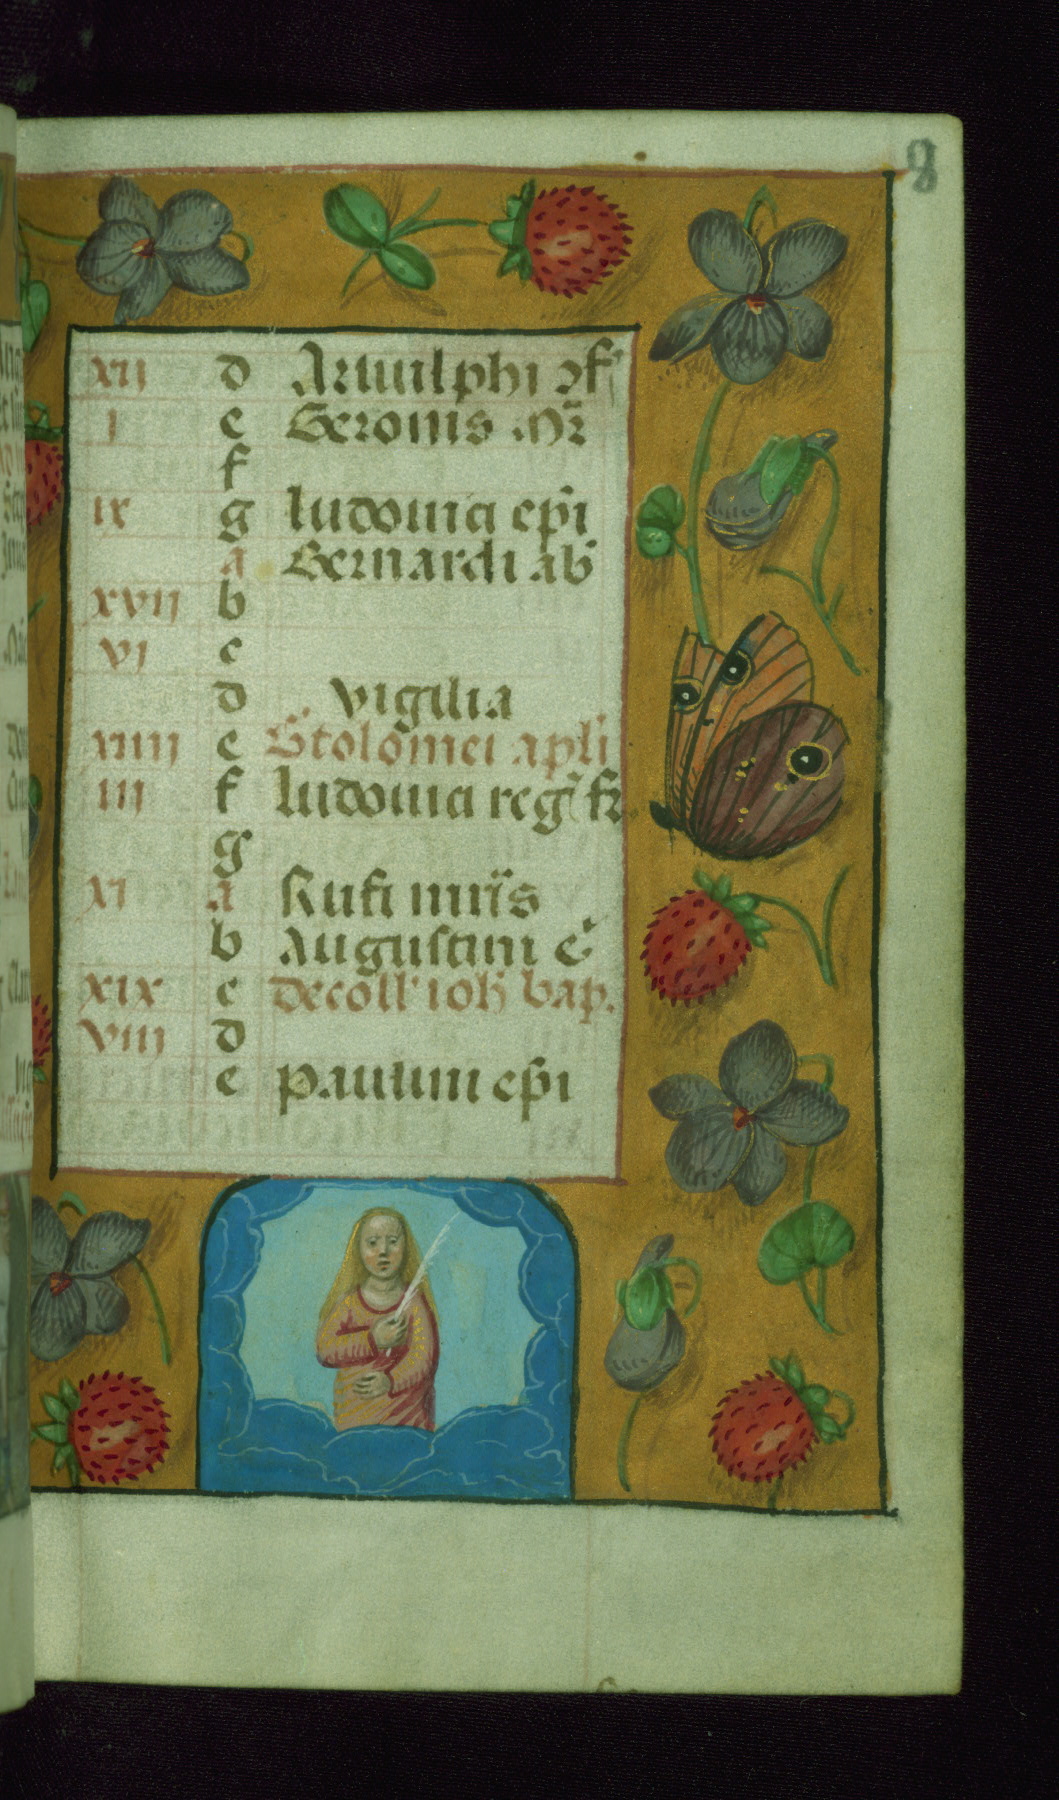 8
xii d Arnulphi ꝯf
i e Geronis mr̃
f
ix g ludouici ep̃i
a Bernardi ab
xvii b
vi c
d vigilia
xiiii e Btolomei apli
iii f ludouici reg̃ fr̃
g
xi a Rufi mr̃is
b Augustini e
xix c decoll' ioh bap.
viii d
e paulini ep̃i